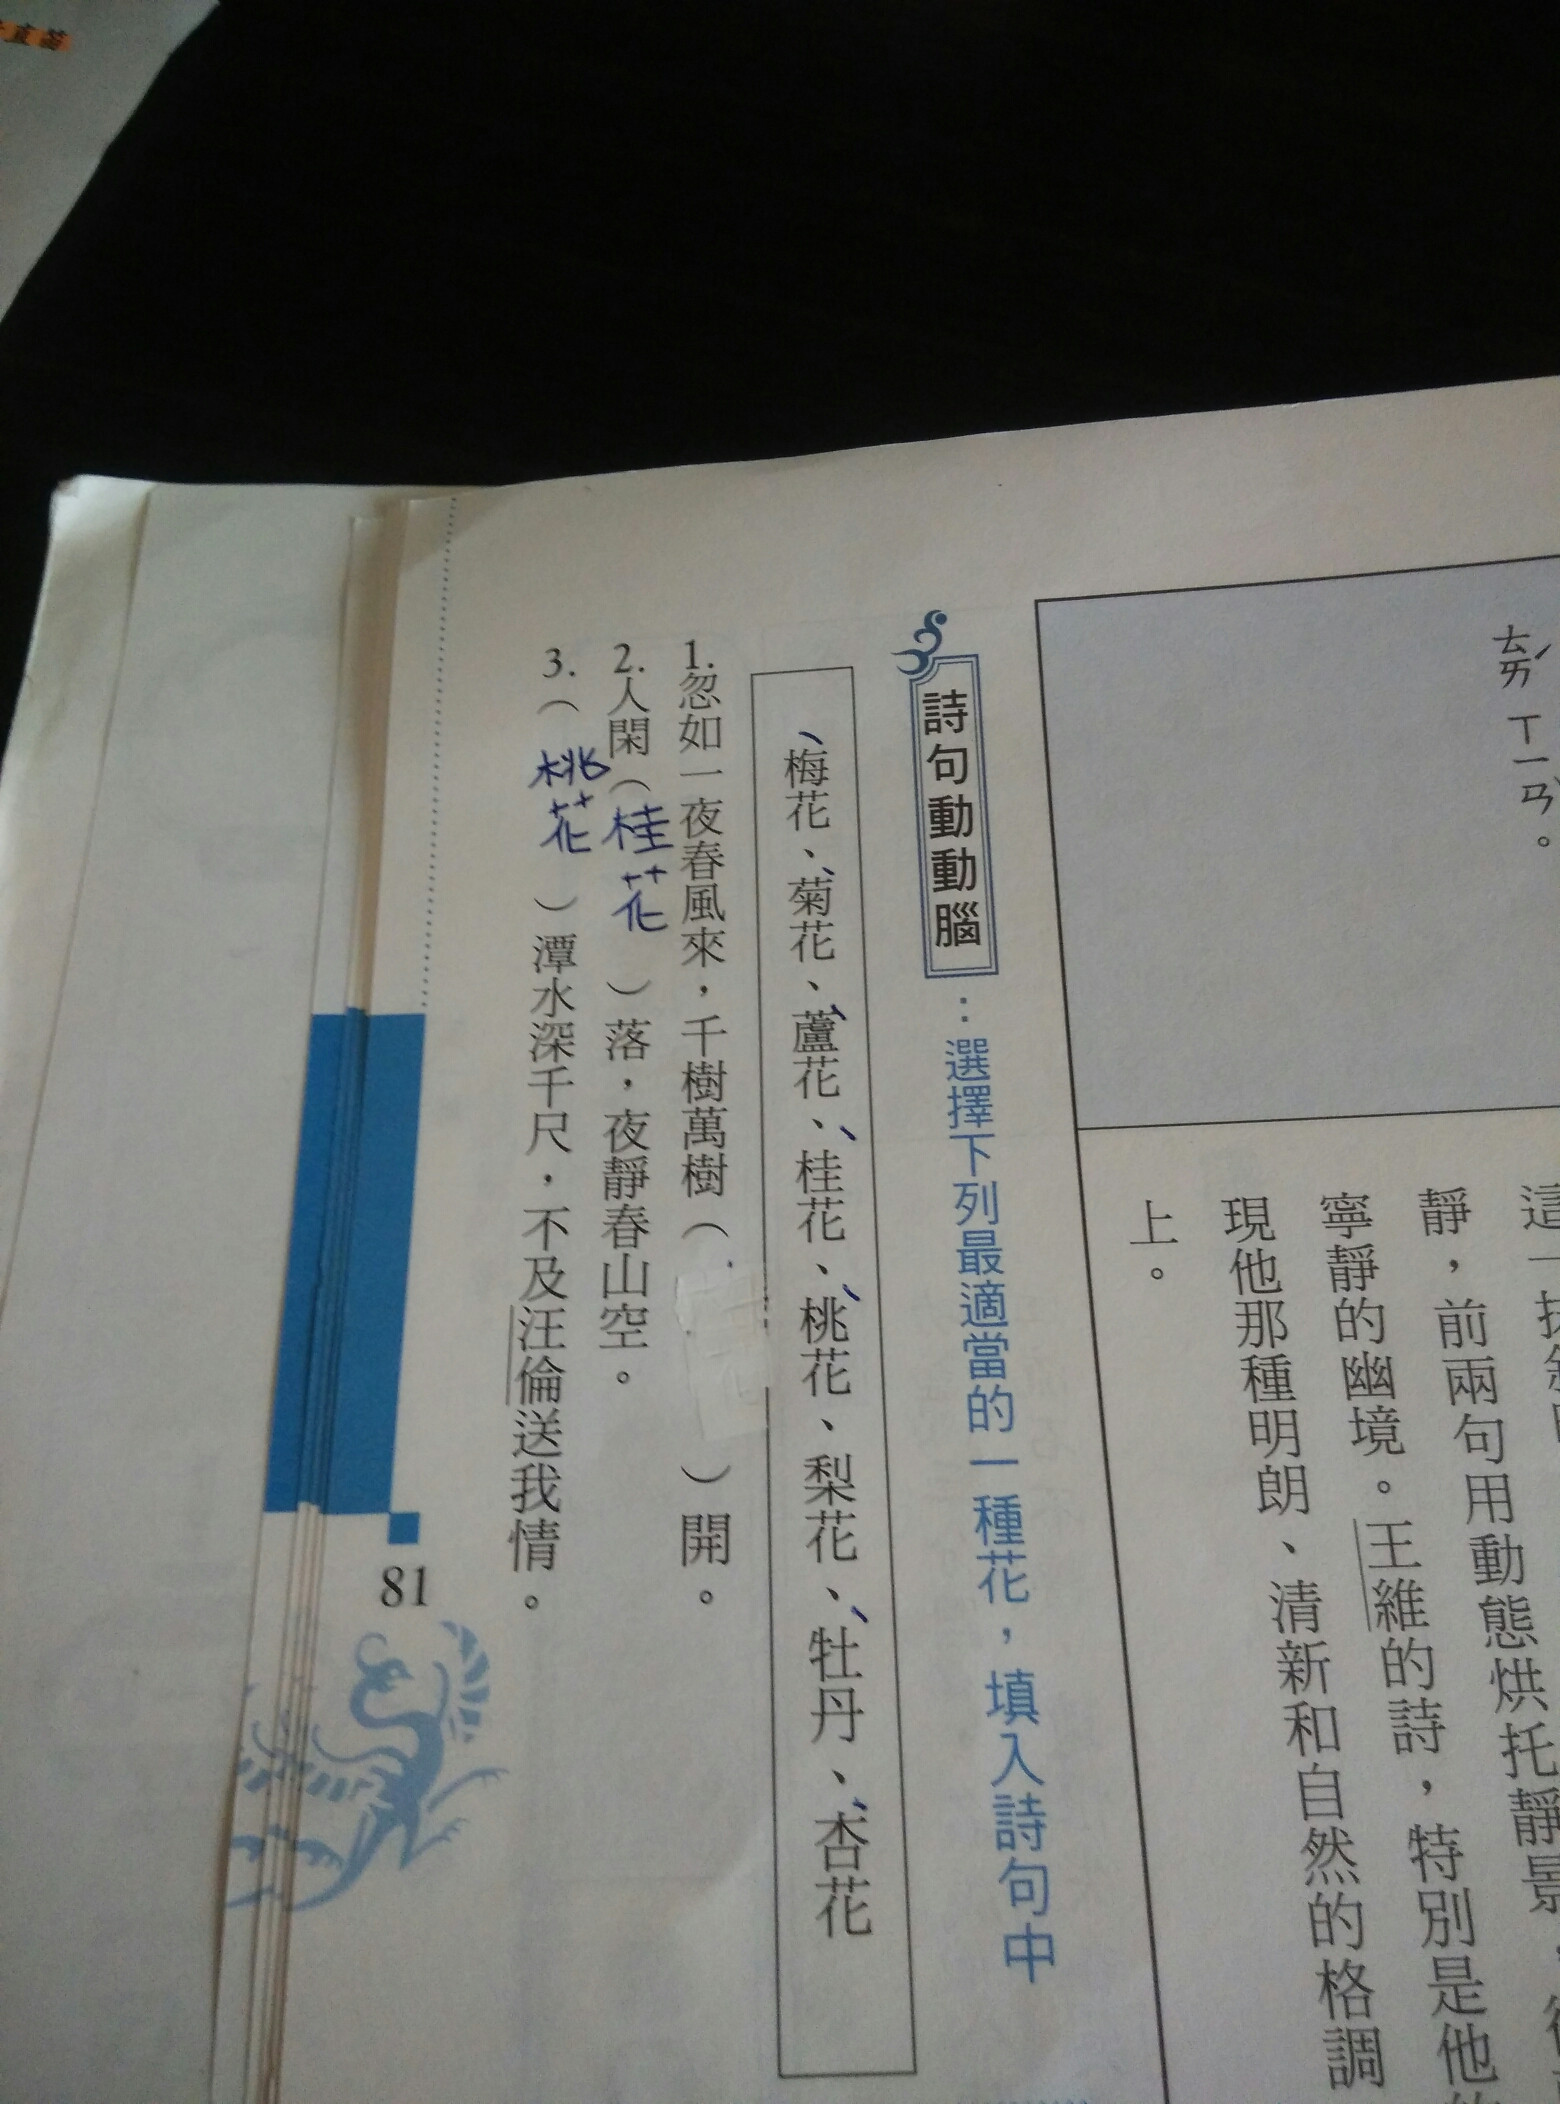 ㄊㄞˊ ㄒㄧㄢˋ。
靜，前兩句用動態烘托靜景，
寧靜的幽境。王維的詩，特別是他的
現他那種明朗、清新和自然的格調
上。
詩句動動腦：選擇下列最適當的一種花，填入詩句中
梅花、菊花、蘆花、桂花、桃花、梨花、牡丹、杏花
1.忽如一夜春風來，千樹萬樹（ ）開。
2.人閑（桂花）落，夜靜春山空。
3.（桃花）潭水深千尺，不及汪倫送我情。
81